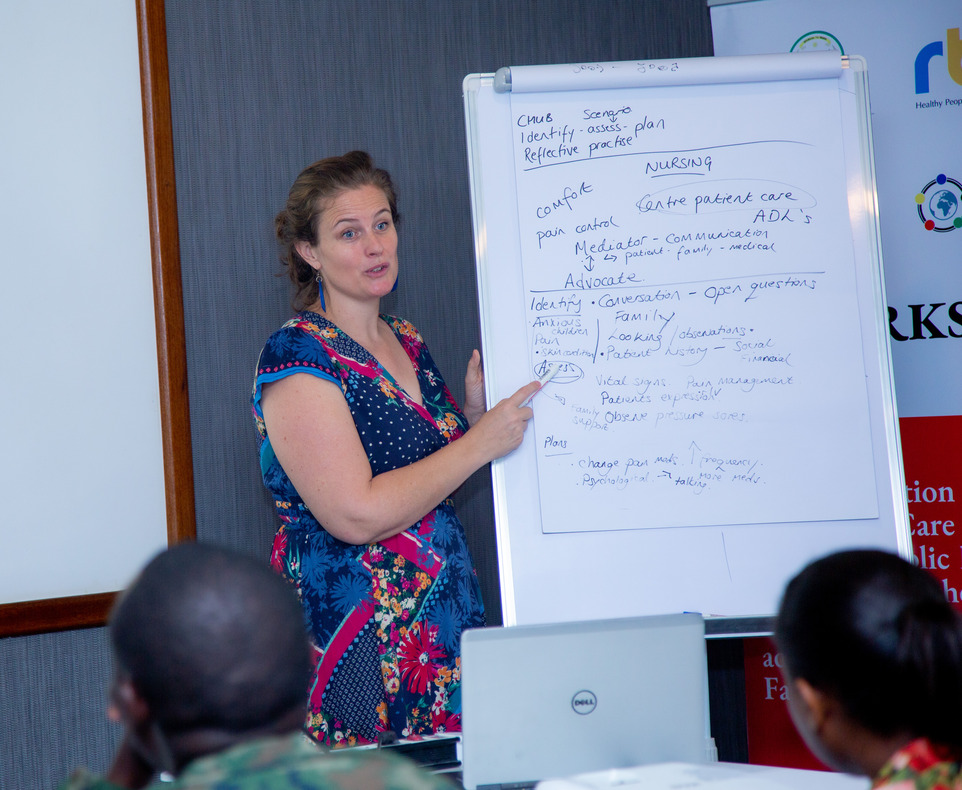 CHUB Scenario
Identify - assess - plan
Reflective practise
NURSING
comfort
Centre patient care
ADL's
pain control
Mediator - communication
↳ patient - family - medical
Advocate
Identify • Conversation - Open questions
Anxious
children
Pain
• skin condition
Family
Looking / observations •
• Patient history - Social
Financial
Assess
Vital signs Pain management
Patients expression
Family support
Observe pressure sores.
Plans
• change pain meds. ↑ frequency.
more meds.
• Psychological → talking.
DELL
Healthy Peop
RKS
tion
Care
blic
ac
Fa